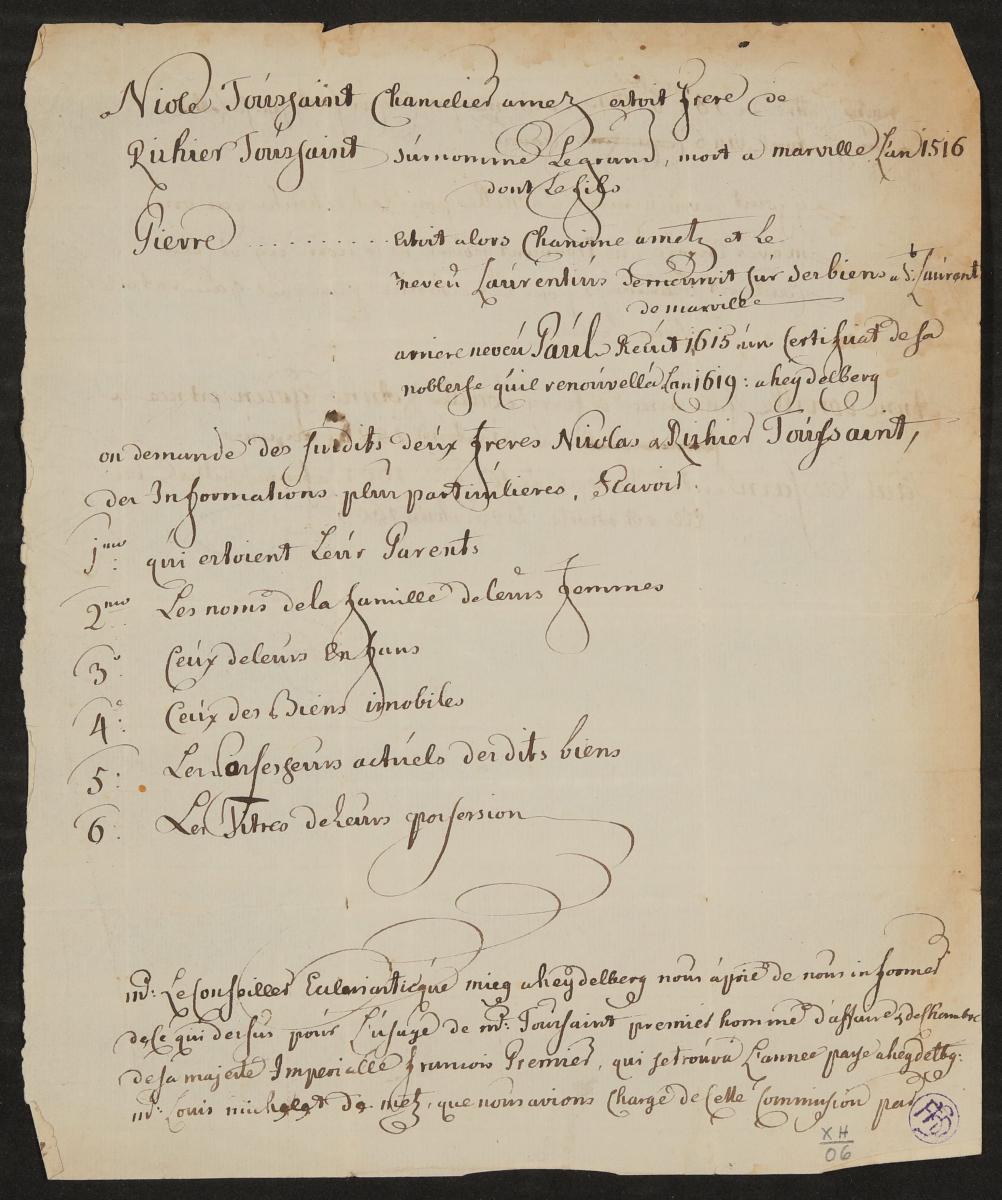 Niole Toussaint Chamelier amez estoit frere de
Richier Toussaint surnommé Legrand, mort a marville L'an 1516
dont Le fils
Pierre .......... estoit alors Chanoine a metz et Le
neveu Laurentius demeuroit sur ses biens a St: Laurent
de marville
arriere neveu Paul Reçut 1615 un Certificat de sa
noblesse quil renouvella L'an 1619: a heydelberg
on demande des susdits deux freres Nicolas & Richier Toussaint,
des Informations plus particulieres, Scavoir.
1mo: qui estoient Leur Parents
2mo: Les noms de la famille de leurs femmes
3o: Ceux de leurs Enfans
4o: Ceux des Biens imobiles
5: Les Possesseurs actuels desdits biens
6: Les Titres de Leurs possession
mr: Le Conseiller Eclesiasticque mieg a heydelberg nous a prié de nous informer
de Ce qui dessus pour L'usage de mr: Toussaint premier homme d'affaire de Chambre
de sa majesté Imperialle francois Premier, qui se trouva L'année passe a heydelbg:
mr: Louis michelet de metz, que nous avions Chargé de Cette Commission par
XH
06